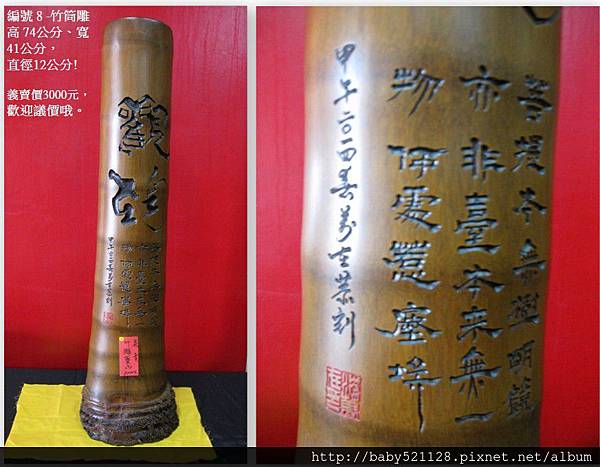 編號 8 -竹筒雕
高 74公分、寬
41公分，
直徑12公分!
義賣價3000元，
歡迎議價哦。
觀
菩提本無樹明鏡
亦非臺本來無一
物何處惹塵埃
甲午二〇一四春
恭刻
http://baby521128.pixnet.net/album